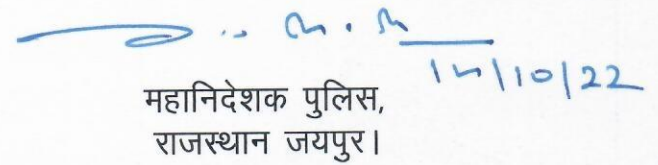 /10/22
महानिदेशक पुलिस,
राजस्थान जयपुर।